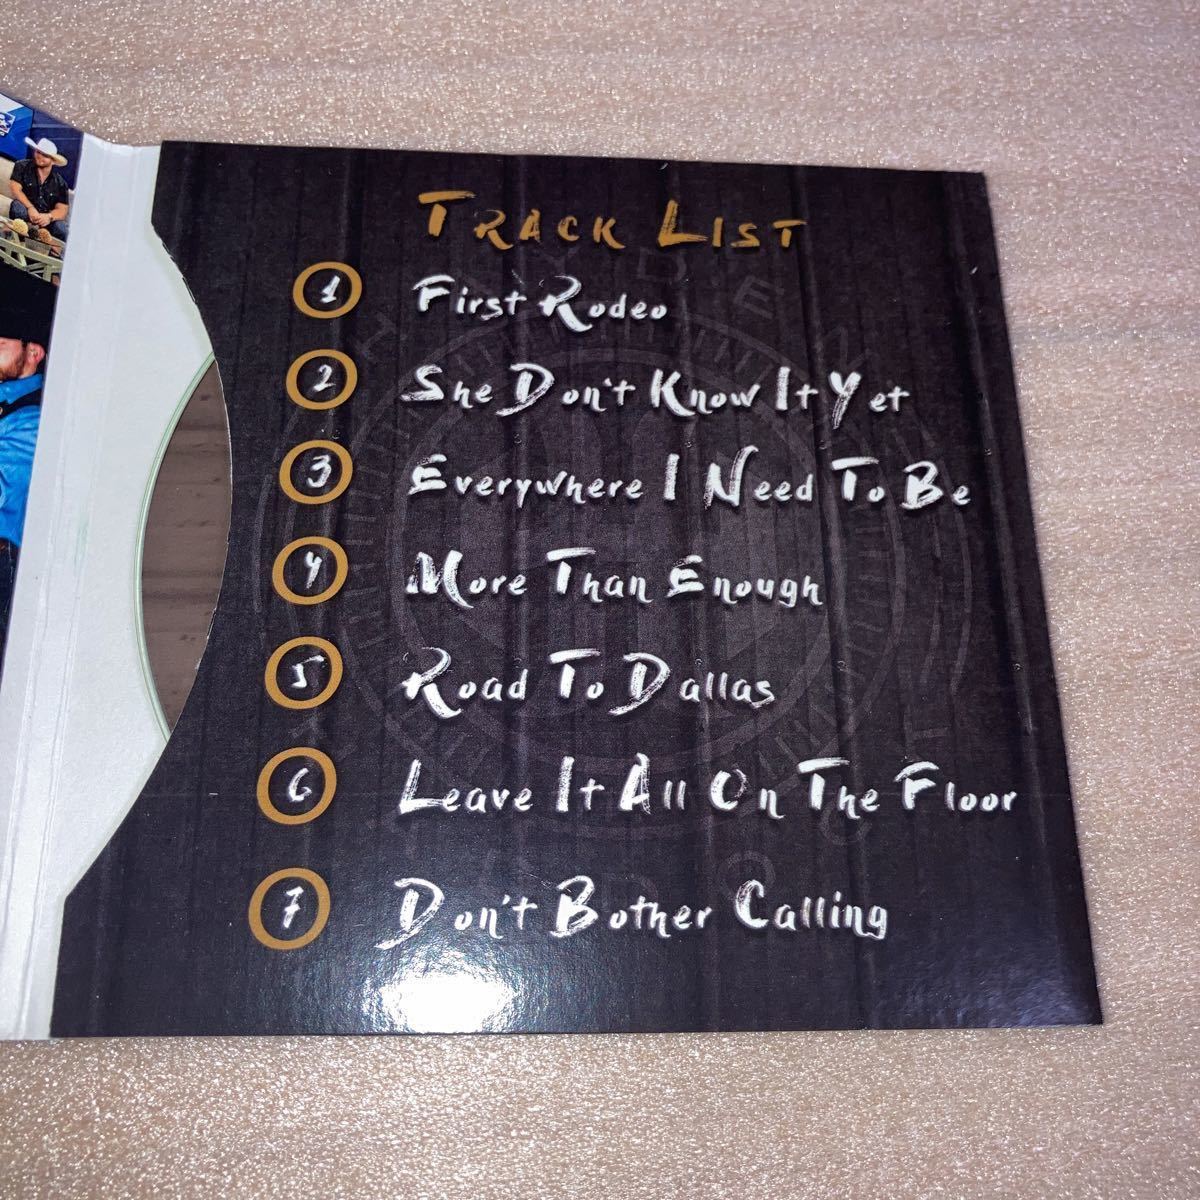 Track List
1 First Rodeo
2 She Don't Know It Yet
3 Everywhere I Need To Be
4 More Than Enough
5 Road To Dallas
6 Leave It All On The Floor
7 Don't Bother Calling